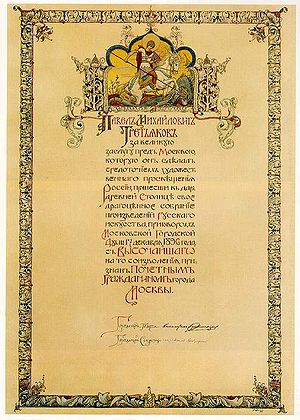 Павелъ Михайловичъ
Третьяковъ
за великую
заслугу предъ Москвою
которую онъ сдѣлалъ
средоточiемъ художест
веннаго просвѣщенiя
Россiи, принеся въ даръ
древней Столицѣ свое
драгоцѣнное собранiе
произведенiй русскаго
искусства, приговоромъ
Московской Городской
Думы декабря 1896 года
съ Высочайшаго
на то соизволенiя, приз
нанъ Почетнымъ
Гражданиномъ города
Москвы.
Городской
Городской